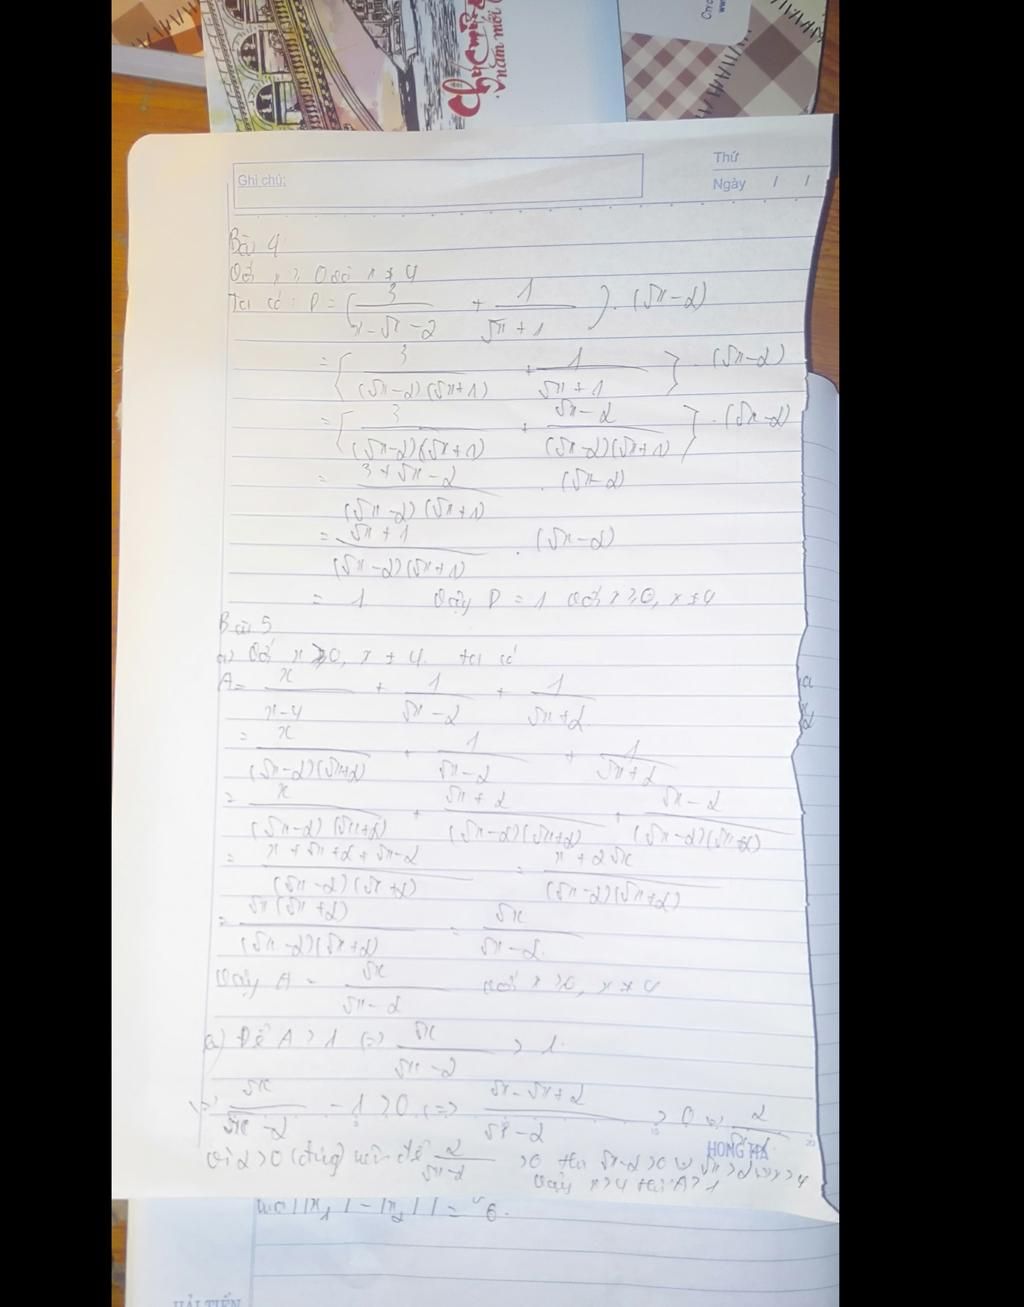 Chúc mừng
năm mới
Thứ
Ghi chú:
Ngày / /
Bài 4
Với x ≥ 0 và x ≠ 4
Ta có: P = (3/(x-√x-2) + 1/(√x+1)) . (√x-2)
= [3/((√x-2)(√x+1)) + 1/(√x+1)] . (√x-2)
= [3/((√x-2)(√x+1)) + (√x-2)/((√x-2)(√x+1))] . (√x-2)
= (3+√x-2)/((√x-2)(√x+1)) . (√x-2)
= (√x+1)/((√x-2)(√x+1)) . (√x-2)
= 1 Vậy P = 1 với x ≥ 0, x ≠ 4
Bài 5
a) Với x ≥ 0, x ≠ 4. ta có
A = x/(x-4) + 1/(√x-2) + 1/(√x+2)
= x/((√x-2)(√x+2)) + 1/(√x-2) + 1/(√x+2)
= x/((√x-2)(√x+2)) + (√x+2)/((√x-2)(√x+2)) + (√x-2)/((√x-2)(√x+2))
= (x+√x+2+√x-2)/((√x-2)(√x+2)) = (x+2√x)/((√x-2)(√x+2))
= √x(√x+2)/((√x-2)(√x+2)) = √x/(√x-2)
Vậy A = √x/(√x-2) với x ≥ 0, x ≠ 4
a) Để A > 1 <=> √x/(√x-2) > 1
<=> √x/(√x-2) - 1 > 0 <=> (√x-√x+2)/(√x-2) > 0 <=> 2/(√x-2)
HONG HA
Vì 2 > 0 (đúng) nên để 2/(√x-2) > 0 thì √x-2 > 0 <=> √x > 2 <=> x > 4
Vậy x > 4 thì A > 1
||x₁| - |x₂|| = 6.
HẢI TIẾN